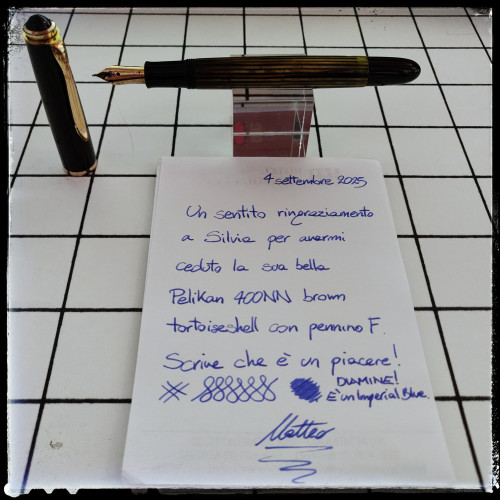 4 settembre 2025
Un sentito ringraziamento
a Silvia per avermi
ceduto la sua bella
Pelikan 400NN brown
tortoiseshell con pennino F.
Scrive che è un piacere!
DIAMINE!
E' un Imperial Blue.
Matteo